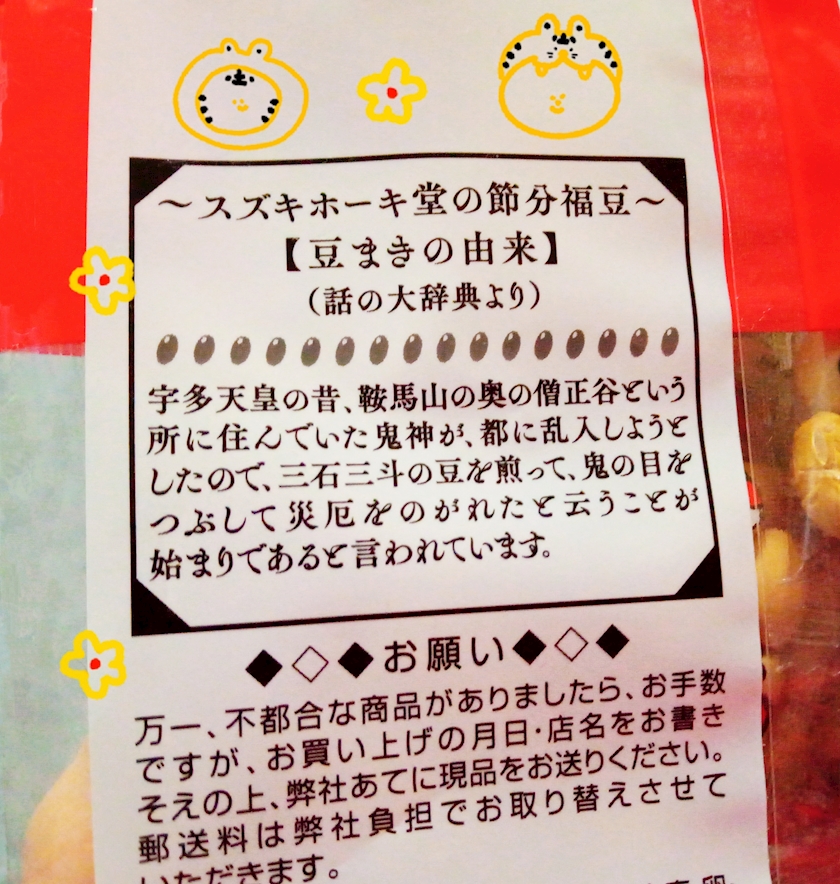 ～スズキホーキ堂の節分福豆～
【豆まきの由来】
(話の大辞典より)
宇多天皇の昔、鞍馬山の奥の僧正谷という
所に住んでいた鬼神が、都に乱入しようと
したので、三石三斗の豆を煎って、鬼の目を
つぶして災厄をのがれたと云うことが
始まりであると言われています。
◆◇◆お願い◆◇◆
万一、不都合な商品がありましたら、お手数
ですが、お買い上げの月日・店名をお書き
そえの上、弊社あてに現品をお送りください。
郵送料は弊社負担でお取り替えさせて
いただきます。